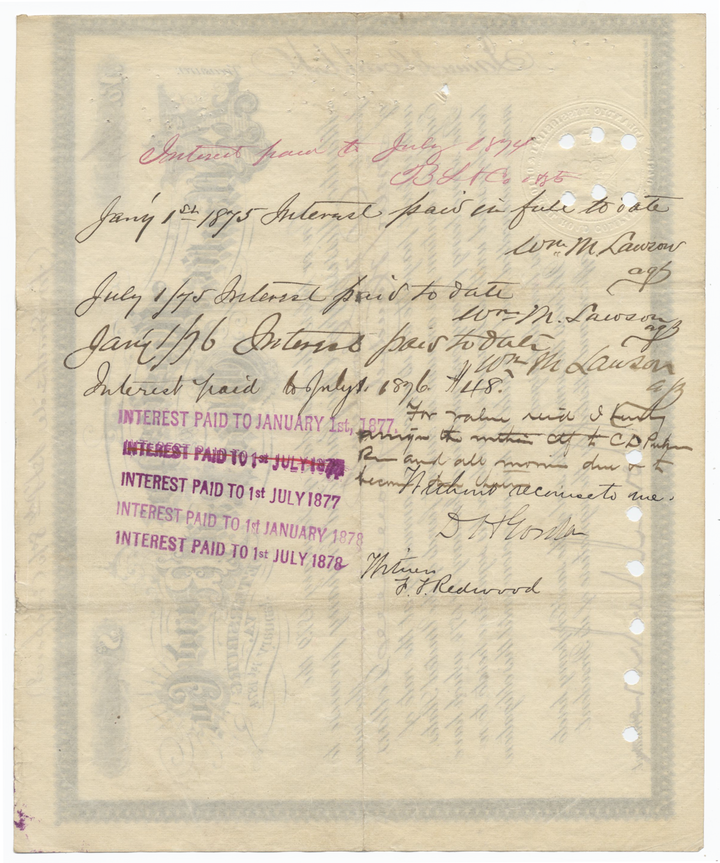 Interest paid to July 1874
Jan'y 1st 1875 Interest paid in full to date
Wm M Lawson
agt
July 1/75 Interest paid to date
Wm M. Lawson
agt
Jan'y 1/76 Interest paid to date
Wm M Lawson
agt
Interest paid to July 1. 1876. $48.
INTEREST PAID TO JANUARY 1st, 1877.
INTEREST PAID TO 1st JULY 1877
INTEREST PAID TO 1st JULY 1877
INTEREST PAID TO 1st JANUARY 1878
INTEREST PAID TO 1st JULY 1878
For value recd I hereby
assign the within ctf to C D
and all monies due or to
become
Without recourse to me.
D H Gordon
Witness
F. T. Redwood